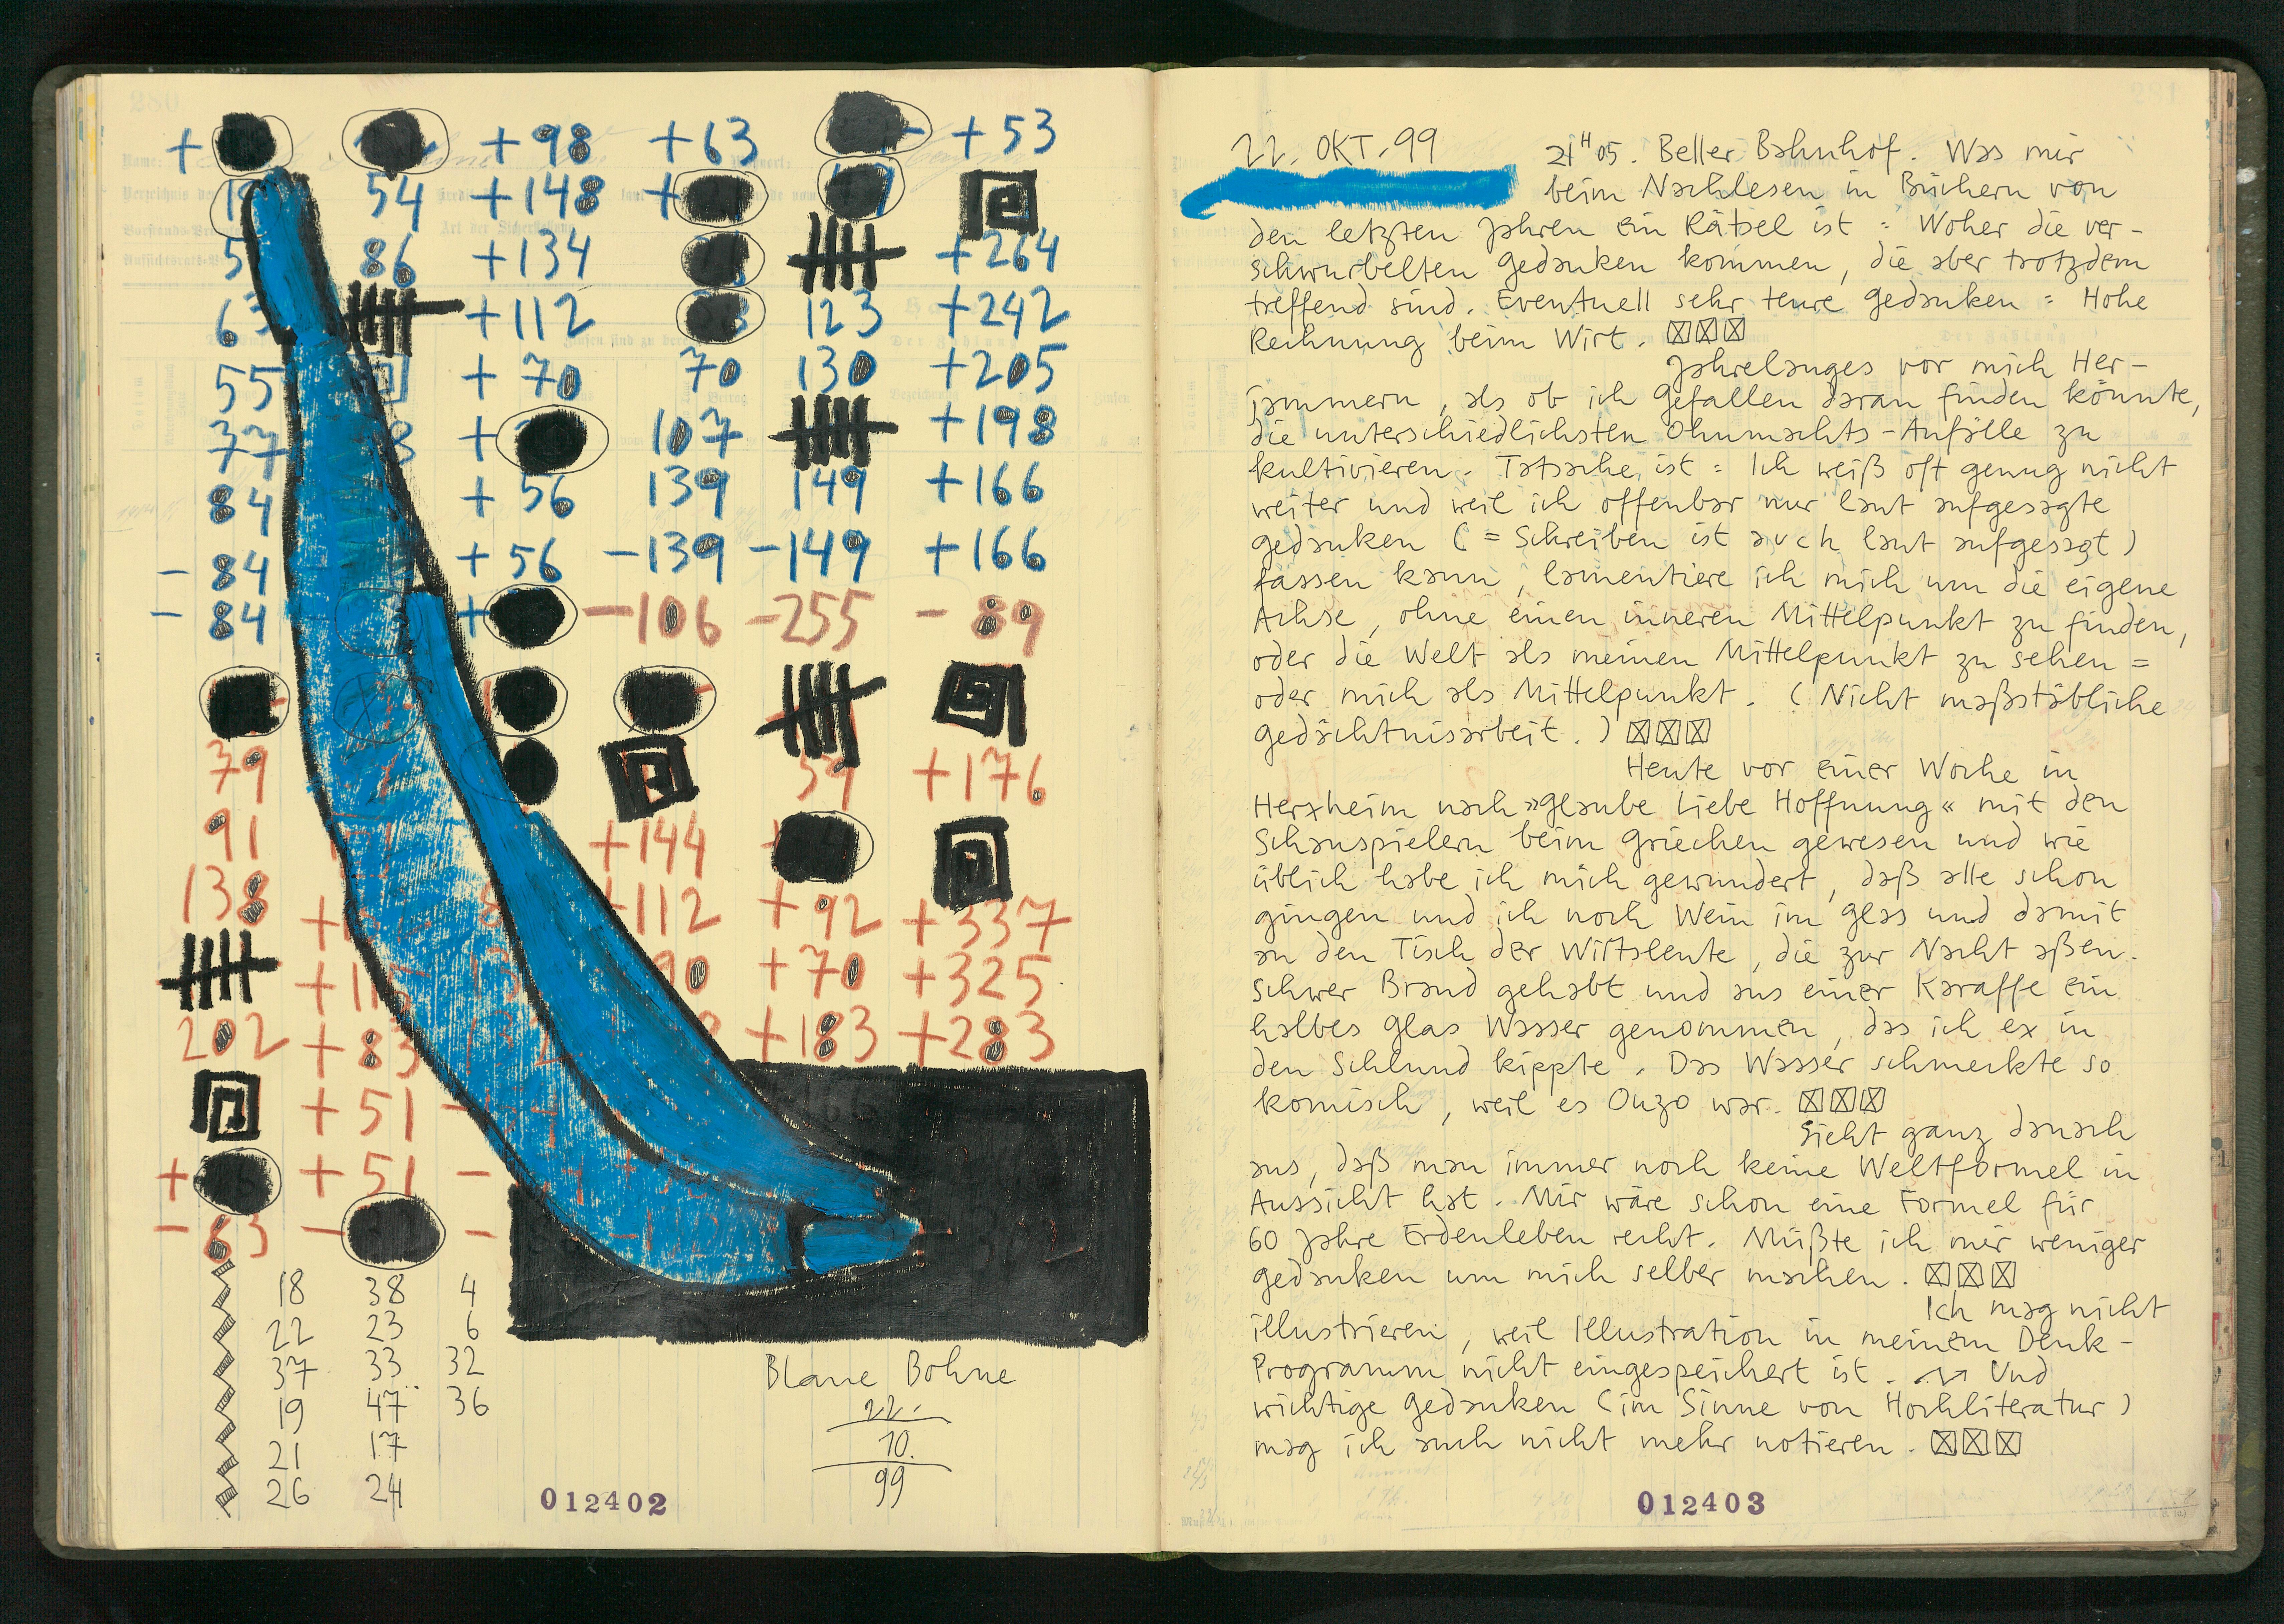 + 98 + 63 + 53
54 + 148
86 + 134 + 264
+ 112 123 + 242
55 + 70 70 130 + 205
77 107 + 198
84 + 56 139 149 + 166
- 84 + 56 - 139 - 149 + 166
- 84 - 106 - 255 - 89
79 59 + 176
91 + 144
138 + 112 + 92 + 337
+ 70 + 325
202 + 83 + 183 + 283
+ 51
+ 51
- 83
18 38 4
22 23 6
37 33 32
19 47 36
21 17
26 24
Blaue Bohne
22.
10.
99
012402
22. OKT. 99
21H05. Beller Bahnhof. Was mir
beim Nachlesen in Büchern von
den letzten Jahren ein Rätsel ist = Woher die ver-
schwurbelten Gedanken kommen, die aber trotzdem
treffend sind. Eventuell sehr teure Gedanken = Hohe
Rechnung beim Wirt. ☒☒☒
Jahrelanges vor mich Her-
jammern, als ob ich Gefallen daran finden könnte,
die unterschiedlichsten Ohnmachts-Anfälle zu
kultivieren. Tatsache ist = Ich weiß oft genug nicht
weiter und weil ich offenbar nur laut aufgesagte
Gedanken (= Schreiben ist auch laut aufgesagt)
fassen kann, lamentiere ich mich um die eigene
Achse, ohne einen inneren Mittelpunkt zu finden,
oder die Welt als meinen Mittelpunkt zu sehen =
oder mich als Mittelpunkt. (Nicht maßstäbliche
Gedächtnisarbeit.) ☒☒☒
Heute vor einer Woche in
Herxheim nach »Glaube Liebe Hoffnung« mit den
Schauspielern beim Griechen gewesen und wie
üblich habe ich mich gewundert, daß alle schon
gingen und ich noch Wein im Glas und damit
an den Tisch der Wirtsleute, die zur Nacht aßen.
Schwer Brand gehabt und aus einer Karaffe ein
halbes Glas Wasser genommen, das ich ex in
den Schlund kippte. Das Wasser schmeckte so
komisch, weil es Ouzo war. ☒☒☒
Sieht ganz danach
aus, daß man immer noch keine Weltformel in
Aussicht hat. Mir wäre schon eine Formel für
60 Jahre Erdenleben recht. Müßte ich mir weniger
Gedanken um mich selber machen. ☒☒☒
Ich mag nicht
illustrieren, weil Illustration in meinem Denk-
Programm nicht eingespeichert ist. Und
wichtige Gedanken (im Sinne von Hochliteratur)
mag ich auch nicht mehr notieren. ☒☒☒
012403